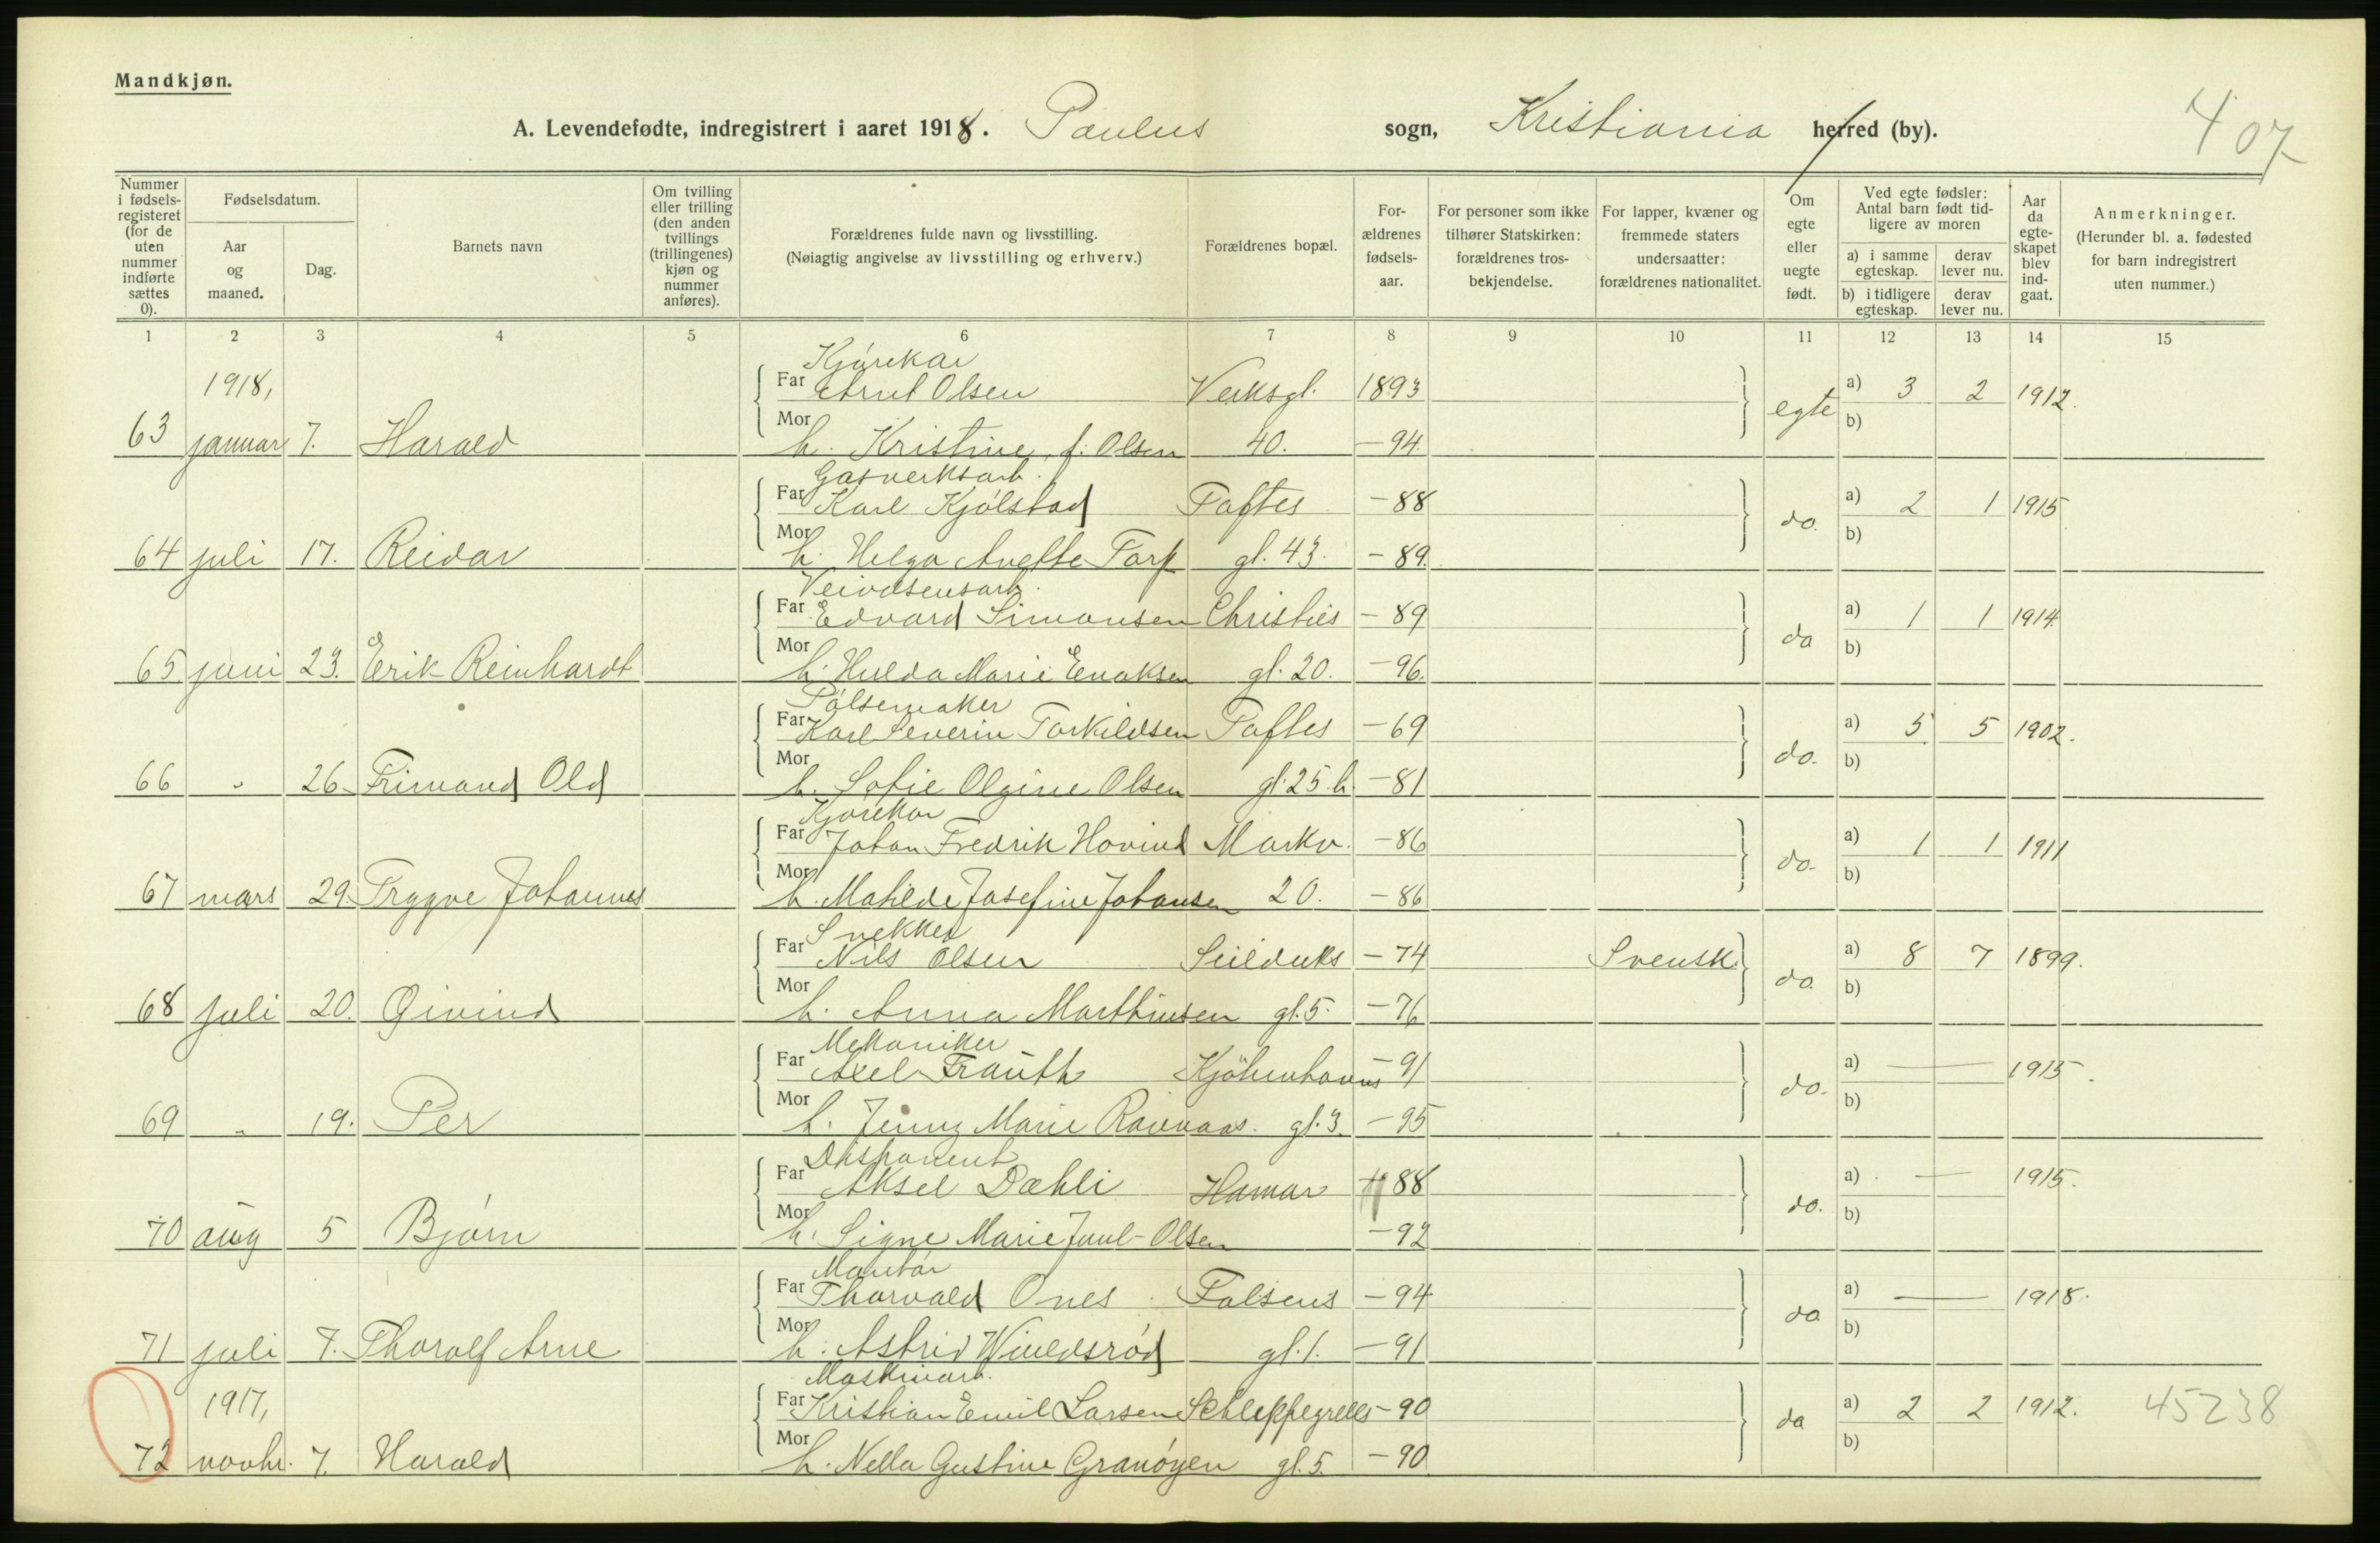 Mandkjøn.
A. Levendefødte, indregistrert i aaret 1918. Paulus sogn, Kristiania herred (by). 407
Nummer i fødsels-registeret (for de uten nummer indførte sættes 0).
Fødselsdatum.
Aar og maaned.
Dag.
Barnets navn
Om tvilling eller trilling (den anden tvillings (trillingenes) kjøn og nummer anføres).
Forældrenes fulde navn og livsstilling.
(Nøiagtig angivelse av livsstilling og erhverv.)
Forældrenes bopæl.
For-ældrenes fødsels-aar.
For personer som ikke tilhører Statskirken: forældrenes tros-bekjendelse.
For lapper, kvæner og fremmede staters undersaatter: forældrenes nationalitet.
Om egte eller uegte født.
Ved egte fødsler: Antal barn født tid-ligere av moren
a) i samme egteskap. derav lever nu.
b) i tidligere egteskap. derav lever nu.
Aar da egte-skapet blev ind-gaat.
Anmerkninger.
(Herunder bl. a. fødested for barn indregistrert uten nummer.)
1 2 3 4 5 6 7 8 9 10 11 12 13 14 15
Kjørekar
1918, Far Arnt Olsen Verksgt. 1893 egte a) 3 2 1912.
63 januar 7. Harald Mor h. Kristine, f. Olsen 40. -94. b)
Gasverksarb.
Far Karl Kjølstad Toftes -88 do. a) 2 1 1915
64 juli 17. Reidar Mor h. Helga Anette Torp gt. 43. -89. b)
Veivæsensarb.
Far Edvard Simonsen Christies -89 do a) 1 1 1914
65 juni 23. Erik Reinhardt Mor h. Hulda Marie Enoksen gt. 20. -96. b)
Pølsemaker
Far Karl Severin Torkildsen Toftes -69 do. a) 5 5 1902.
66 " 26 Frimand Old Mor h. Sofie Olgine Olsen gt. 25.b. -81 b)
Kjørekar
Far Johan Fredrik Hovind Markv. -86 do. a) 1 1 1911
67 mars 29. Trygve Johannes Mor h. Matilde Josefine Johansen 20. -86 b)
Snekker
Far Nils Olsen Seilduks -74 Svensk do. a) 8 7 1899.
68 juli 20. Øivind Mor h. Anna Marthinsen gt. 5. -76 b)
Mekaniker
Far Axel Frauth Kjöbenhavns -91 do. a) — 1915.
69 " 19. Per Mor h. Jenny Marie gt. 3. -95 b)
Disponent
Far Aksel Dæhli Hamar 88 do. a) — 1915.
70 aug 5 Bjørn Mor h. Signe Marie Juul-Olsen -92 b)
Montør
Far Thorvald Ones Falsens -94 do a) — 1918.
71 juli 7. Thoralf Arne Mor h. Astrid gt. 1. -91 b)
Maskinarb.
1917, Far Kristian Emil Larsen Schleppegrells -90 do a) 2 2 1912. 45238
72 novbr. 7. Harald Mor h. Nella Gustine Granøyen gt. 5. -90 b)